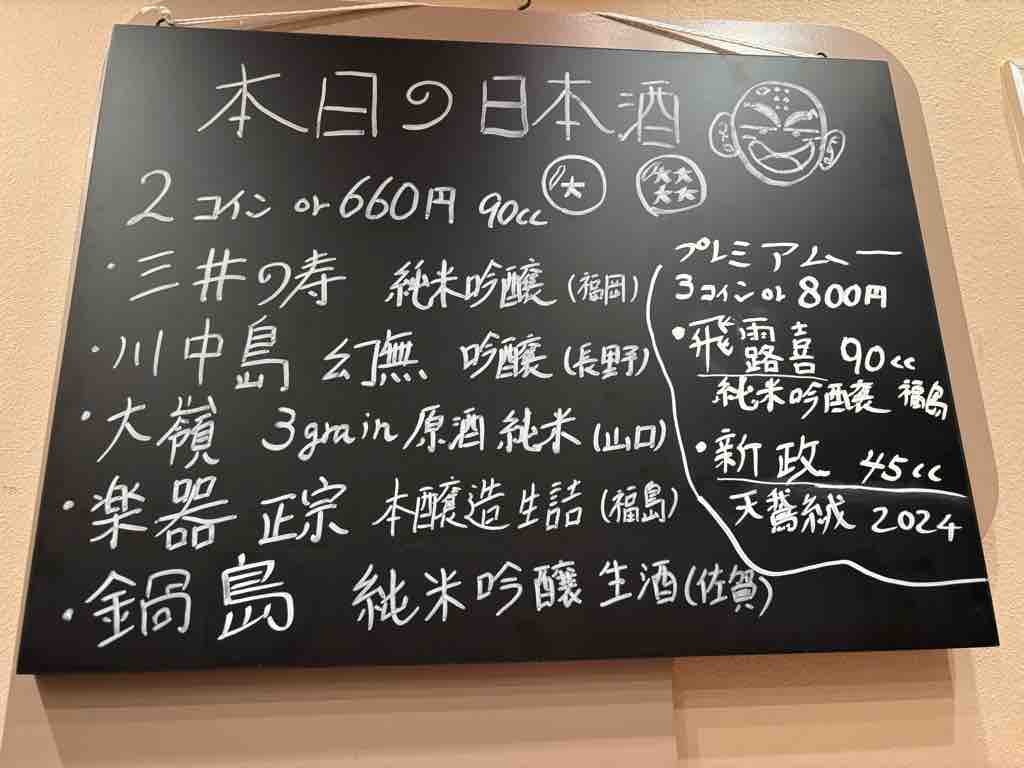 本日の日本酒
2コイン or 660円 90cc
・三井の寿 純米吟醸(福岡)
・川中島 幻無 吟醸(長野)
・大嶺 3grain 原酒 純米(山口)
・楽器正宗 本醸造生詰(福島)
・鍋島 純米吟醸 生酒(佐賀)
プレミアムー
3コイン or 800円
・飛露喜 90cc
純米吟醸 福島
・新政 45cc
天鵞絨 2024